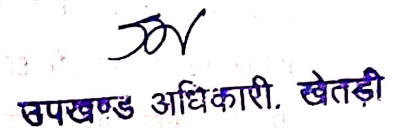 उपखण्ड अधिकारी. खेतड़ी